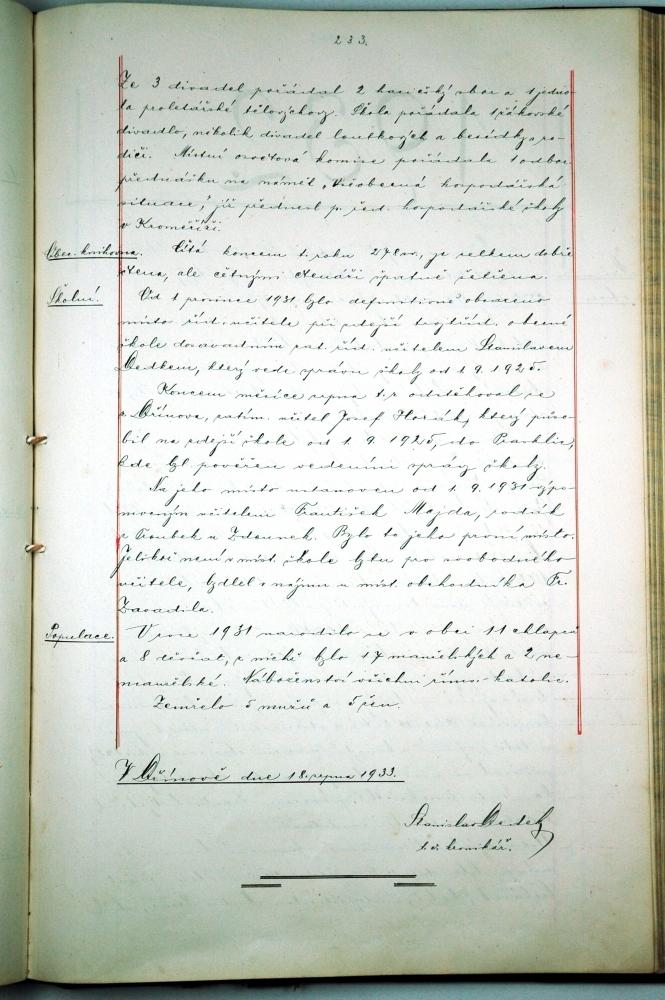 233.
Ze 3 divadel pořádal 2 hasičský sbor a 1 jedno-
ta proletářské tělovýchovy. Škola pořádala 1 žákovské
divadlo, několik divadel loutkových a besídky s ro-
diči. Místní osvětová komise pořádala 1 odbor.
přednášku na námět „Všeobecná hospodářská
situace", již přednesl p. řed. hospodářské školy
v Kroměříži.
Obec. knihovna. Čítá koncem t. roku 278 sv., je celkem dobře
čtena, ale četnými čtenáři špatně šetřena.
Školní. Od 1 prosince 1931 bylo definitivně obsazeno
místo říd. učitele při zdejší trojtříd. obecné
škole dosavadním zat. říd. učitelem Stanislavem
Dedkem, který vede správu školy od 1. 9. 1925.
Koncem měsíce srpna t. r. odstěhoval se
z Dřínova, zatím. učitel Josef Horák, který půso-
bil na zdejší škole od 1. 9. 1925, do Pravčic,
kde byl pověřen vedením správy školy.
Na jeho místo ustanoven od 1. 9. 1931 výpo-
mocným učitelem František Majda, rodák
z Troubek u Zdounek. Bylo to jeho první místo.
Jelikož není v míst. škole bytu pro svobodného
učitele, bydlel v nájmu u míst. obchodníka Fr.
Zavadila.
Populace. V roce 1931 narodilo se v obci 11 chlapců
a 8 děvčat, z nichž bylo 17 manželských a 2 ne-
manželské. Náboženství všichni římsko-katolic.
Zemřelo 5 mužů a 5 žen.
V Dřínově dne 18. srpna 1933.
Stanislav Dedek
t. č. kronikář.